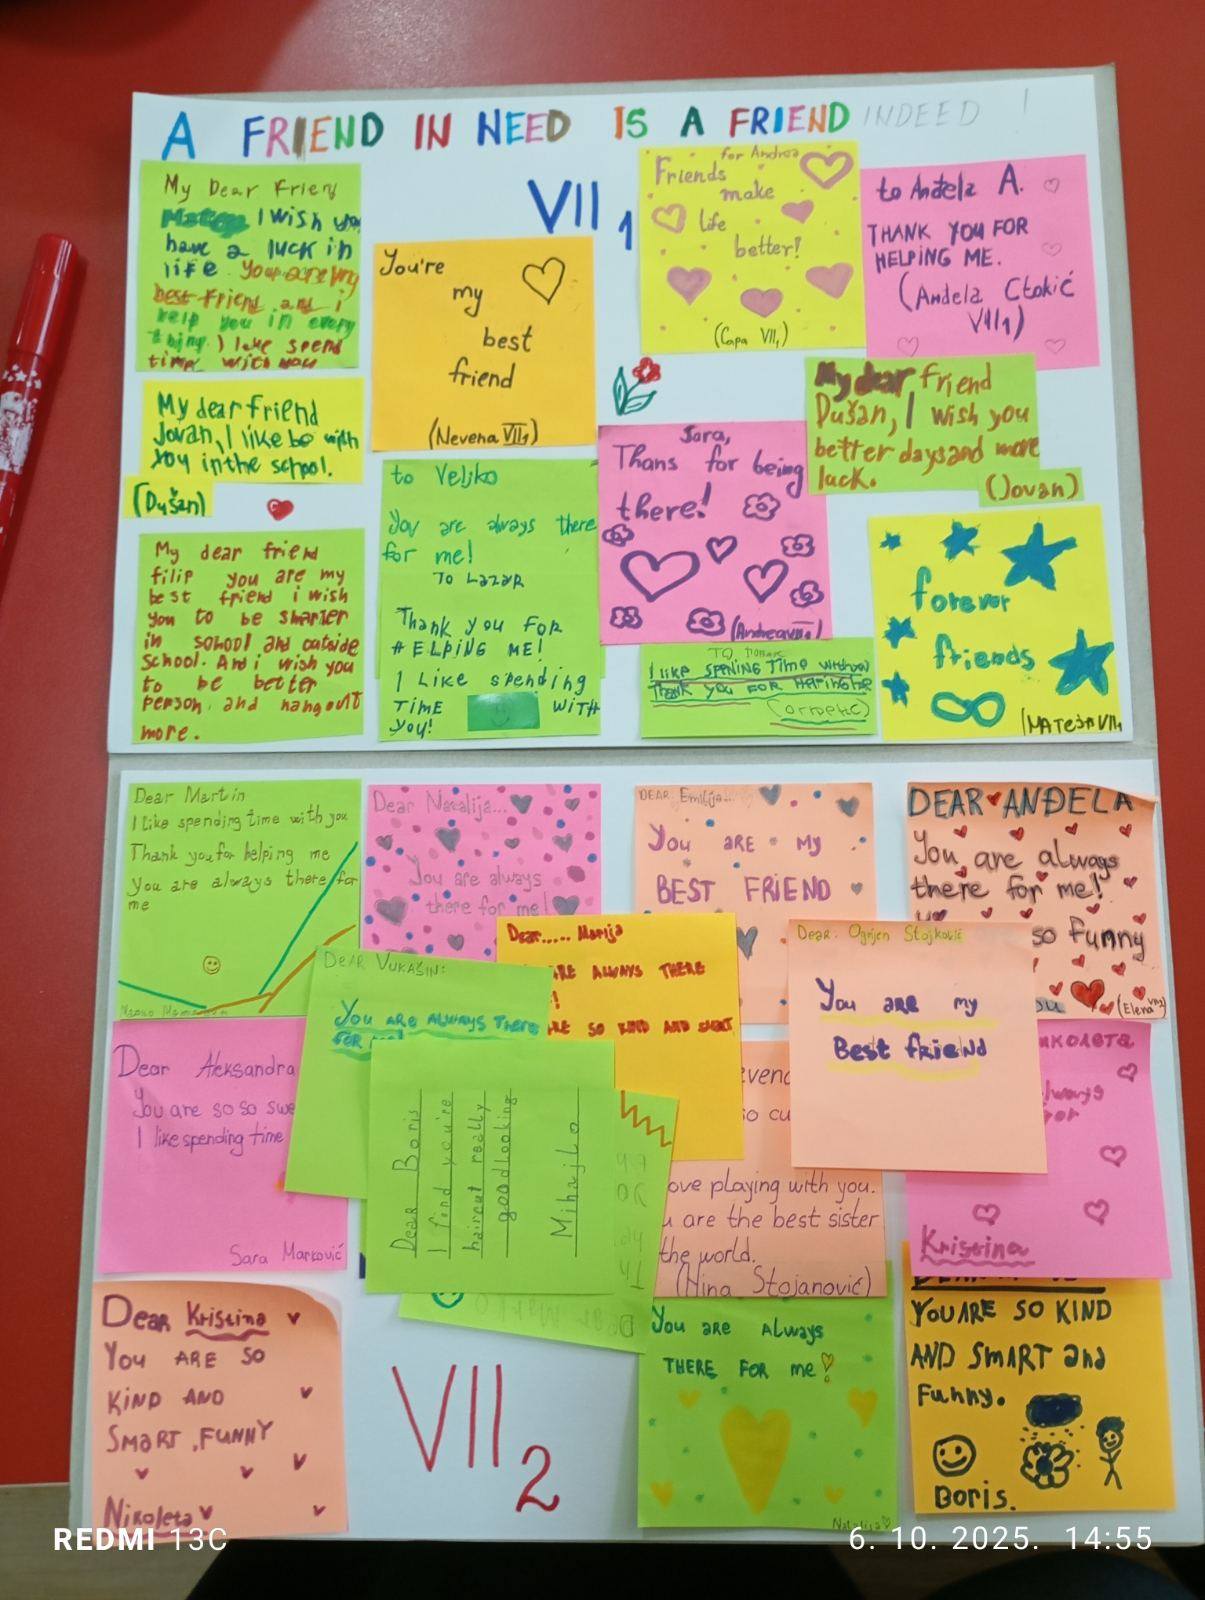 A FRIEND IN NEED IS A FRIEND INDEED !
VII 1
My Dear Frien
I wish you
have a luck in
life. You are my
best friend and i
help you in every
thing. I like spend
time with you
You're
my
best
friend
(Nevena VII1)
for Andrea
Friends
make
life
better!
(Capa VII1)
to Anđela A.
THANK YOU FOR
HELPING ME.
(Anđela Ctokić
VII1)
My dear friend
Jovan, I like be with
you in the school.
(Dušan)
My dear friend
Dušan, I wish you
better days and more
luck.
(Jovan)
My dear friend
filip you are my
best friend i wish
you to be smarter
in school and outside
school. And i wish you
to be better
person and hang out
more.
to Veljko
You are always there
for me!
TO LAZAR
Thank you FOR
HELPING ME!
I Like spending
TIME WITH
YOU!
Sara,
Thans for being
there!
(Andrea VII1)
TO
I like SPENING Time
Thank you FOR
forever
friends
(MATEJA VII1
Dear Martin
I like spending time with you
Thank you for helping me
You are always there for
me
Dear Natalija...
You are always
there for me!
DEAR Emilija...
You ARE My
BEST FRIEND
DEAR ANĐELA
You are always
there for me!
so funny
(Elena VII2)
Dear..... Marija
ARE ALWAYS THERE
ARE SO KIND AND SMART
Dear: Ognjen Stojković
You are my
Best friend
DEAR VUKAŠIN:
YOU ARE ALWAYS THERE
FOR me!
Dear Aleksandra
You are so so swe
I like spending time
Sara Marković
Dear Boris
I find you're
haircut really
goodlooking
Mihajlo
evena
so cu
ove playing with you.
u are the best sister
the world.
(Nina Stojanović)
lways
Kristina
Dear Kristina
YOU ARE SO
KIND AND
SMART, FUNNY
Nikoleta
VII 2
You are Always
THERE FOR me!
Natalija
YOU ARE SO KIND
AND SMART and
Funny.
Boris.
REDMI 13C
6. 10. 2025. 14:55